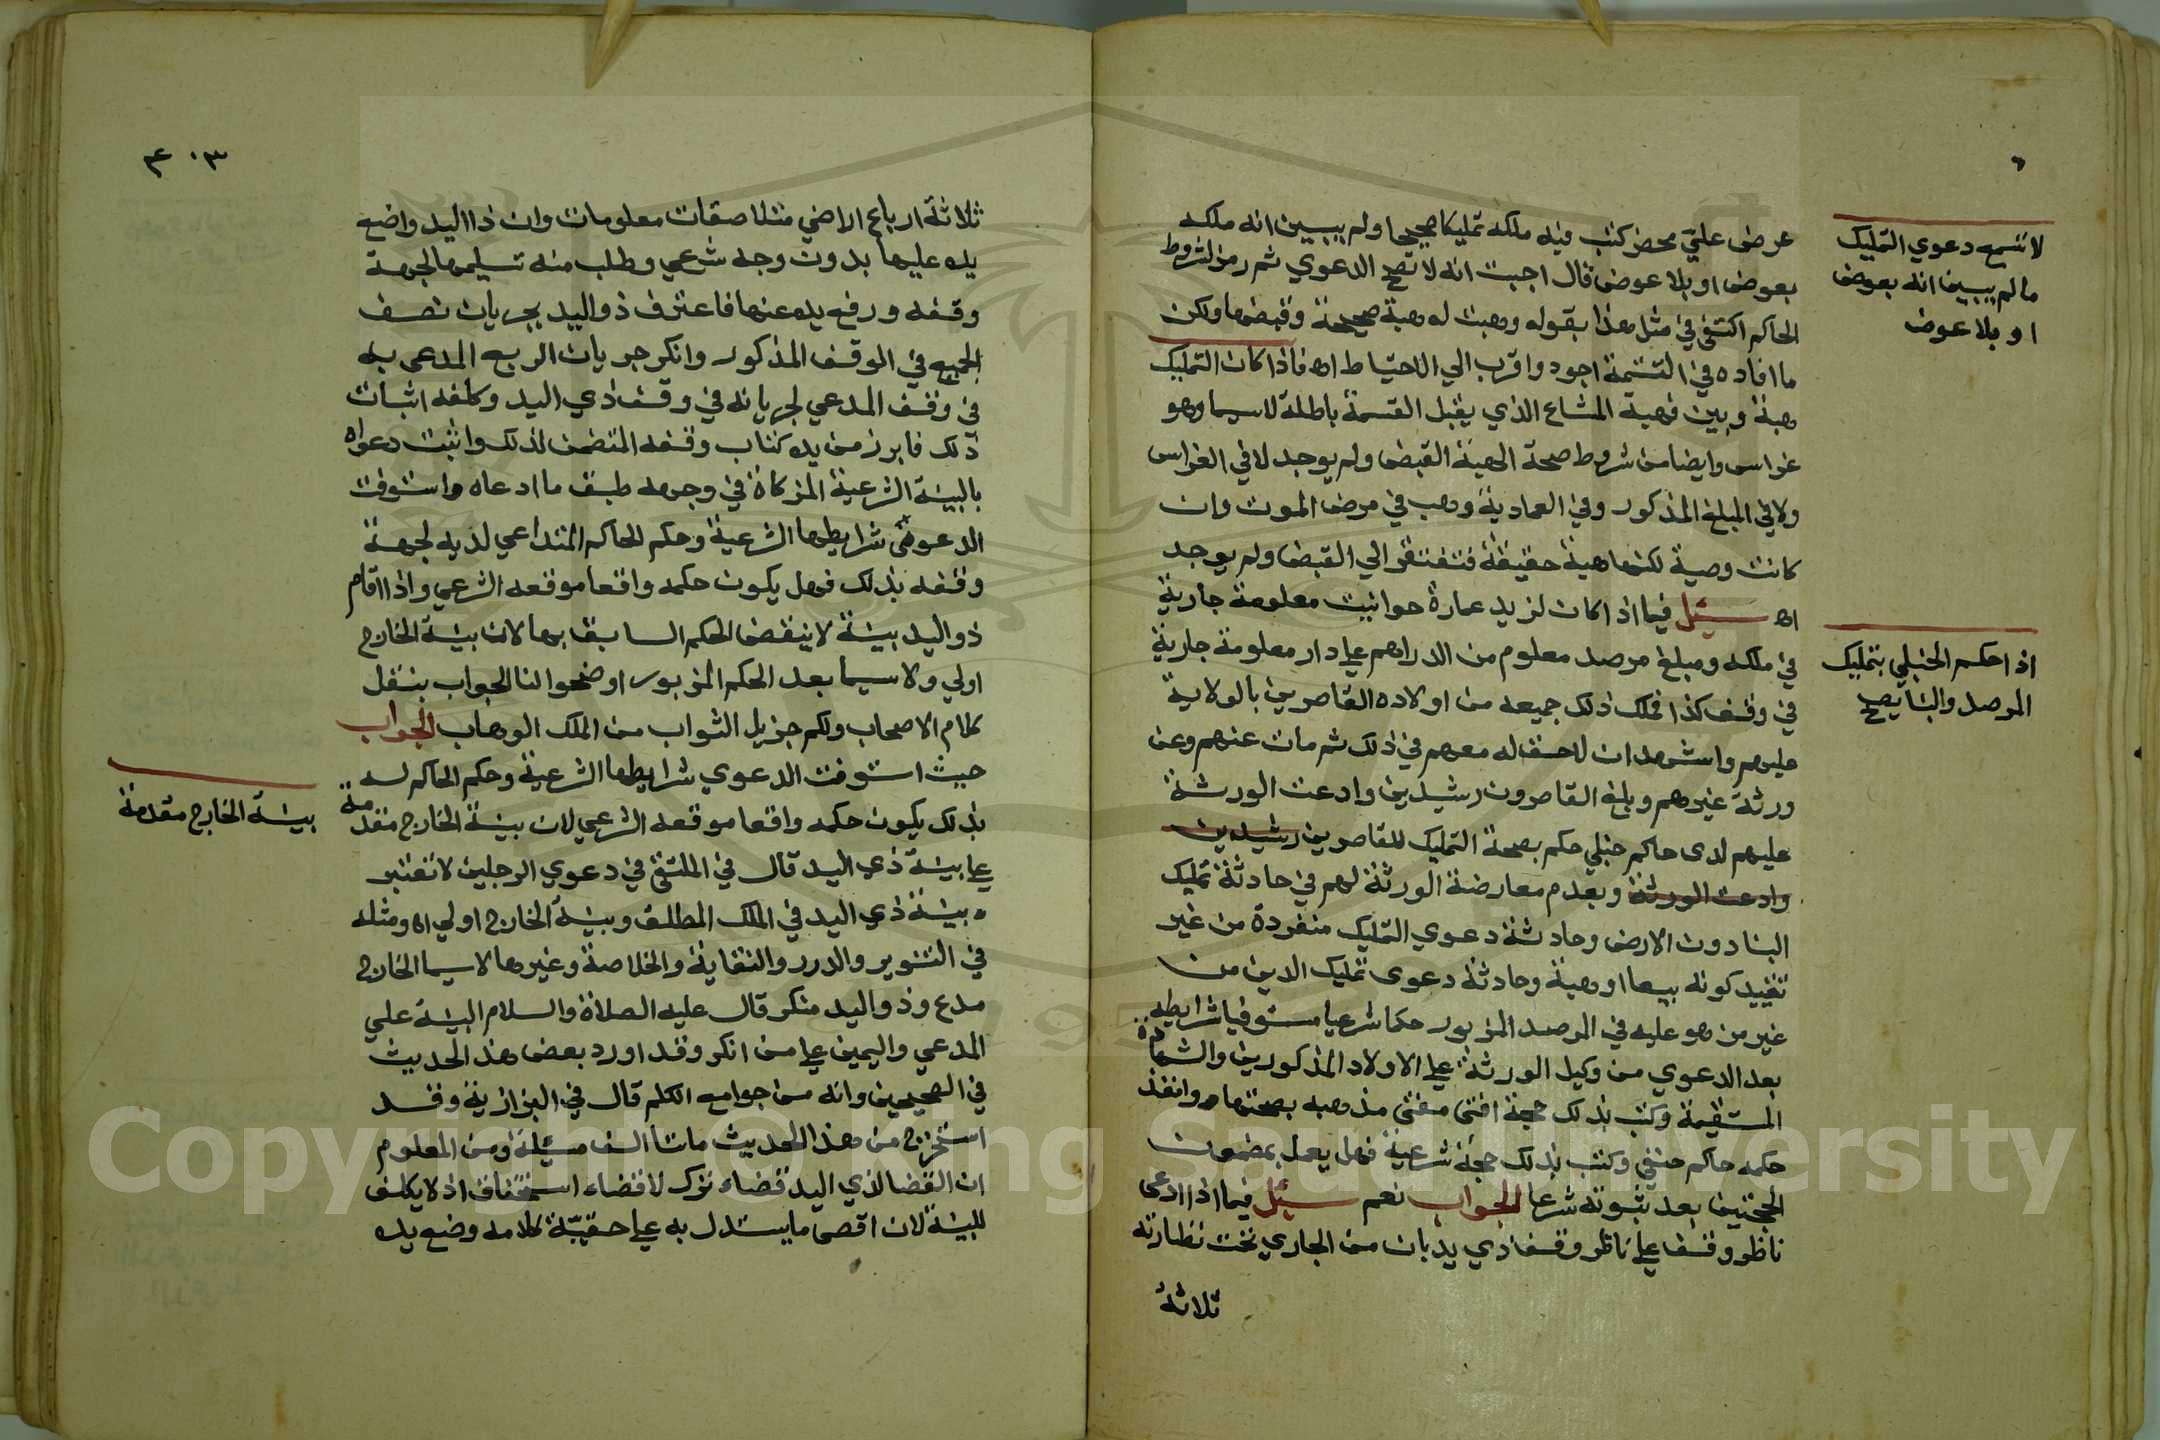 عرض علي محضر كتب فيه ملكه تمليكا صحيحا ولم يبين انه ملكه
بعوض او بلا عوض قال اجبت انه لا تصح الدعوي ثم رمز لشروط
الحاكم اكتفي في مثل هذا بقوله وهبت له هبة صحيحة وقبضها ولكن
ما افاده في التتمة اجود واقرب الي الاحتياط اه فاذا كان التمليك
هبة وبين فهبة المشاع الذي يقبل القسمة باطلة لاسيما وهو
غراس وايضا من شروط صحة الهبة القبض ولم يوجد لا في الغراس
ولا في المبلغ المذكور وفي العمادية وهب في مرض الموت وان
كانت وصية لكنها هبة حقيقة فتفتقر الي القبض ولم يوجد
اه سئل فيما اذا كان لزيد عمارة حوانيت معلومة جارية
في ملكه ومبلغ مرصد معلوم من الدراهم علي دار معلومة جارية
في وقف كذا فملك ذلك جميعه من اولاده القاصرين بالولاية
عليهم واشهد ان لا حق له معهم في ذلك ثم مات عنهم وعن
ورثة غيرهم وبلغ القاصرون رشيدين وادعت الورثة
عليهم لدى حاكم حنبلي حكم بصحة التمليك للقاصرين رشيدين
وادعت الورثة وبعدم معارضة الورثة لهم في حادثة تمليك
البنا دون الارض وحادثة دعوي التمليك منفردة من غير
تقييد كونه بيعا او هبة وحادثة دعوى تمليك الدين من
غير من هو عليه في المرصد المزبور حكما شرعيا مستوفيا شرايطه
بعد الدعوي من وكيل الورثة علي الاولاد المذكورين والشهادة
المستقيمة وكتب بذلك حجة افتى مفتى مذهبه بصحتها وانفذ
حكمه حاكم حنفي وكتب بذلك حجة شرعية فهل يعمل بمضمون
الحجتين بعد ثبوته شرعا الجواب نعم سئل فيما اذا ادعى
ناظر وقف علي ناظر وقف ذي يد بان من الجاري تحت نظارته
ثلاثة
لا تسمع دعوي التمليك
ما لم يبين انه بعوض
او بلا عوض
اذا حكم الحنبلي بتمليك
المرصد والبنا يصح
٤٠٣
ثلاثة ارباع الاضي متلاصقات معلومات وان ذا اليد واضع
يده عليها بدون وجه شرعي وطلب منه تسليمها لجهة
وقفه ورفع يده عنها فاعترف ذو اليد بجريان نصف
الجميع في الوقف المذكور وانكر جريان الربع المدعى به
في وقف المدعي لجريانه في وقف ذي اليد وكلفه اثبات
ذلك فابرز من يده كتاب وقفه المتضمن لذلك واثبت دعواه
بالبينة الشرعية المزكاة في وجهه طبق ما ادعاه واستوفت
الدعوى شرايطها الشرعية وحكم الحاكم المتداعي لديه لجهة
وقفه بذلك فهل يكون حكمه واقعا موقعه الشرعي واذا اقام
ذو اليد بينة لا ينقض الحكم السابق بها لان بينة الخارج
اولي ولا سيما بعد الحكم المزبور اوضحوا لنا الجواب بنقل
كلام الاصحاب ولكم جزيل الثواب من الملك الوهاب الجواب
حيث استوفت الدعوي شرايطها الشرعية وحكم الحاكم له
بذلك يكون حكمه واقعا موقعه الشرعي لان بينة الخارج مقدمة
علي بينة ذي اليد قال في الملتقى في دعوي الرجلين لا تعتبر
بينة ذي اليد في الملك المطلق وبينة الخارج اولي اه ومثله
في التنوير والدرر والنقاية والخلاصة وغيرها لاسيما الخارج
مدع وذو اليد منكر قال عليه الصلاة والسلام البينة علي
المدعي واليمين علي من انكر وقد اورد بعض هذ الحديث
في الصحيحين وانه من جوامع الكلم قال في البزازية وقد
استخرج من هذ الحديث ماتا الف مسئلة ومن المعلوم
ان القضا لذي اليد قضاء ترك لا قضاء استحقاق اذ لا يكلف
للبينة لان اقصى ما يستدل به علي حقيّة كلامه وضع يده
بينة الخارج مقدمة
Copyright © King Saud University